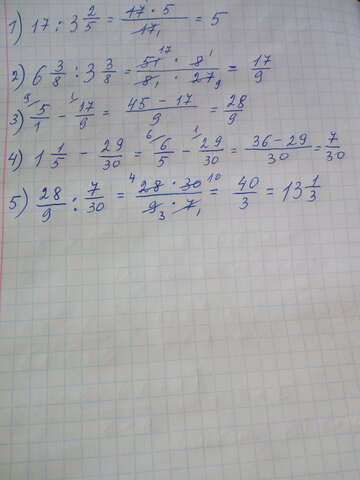 1) 17 : 3 2/5 = 17 · 5 / 17 1 = 5
2) 6 3/8 : 3 3/8 = 51 17 · 8 1 / 8 1 · 27 9 = 17/9
3) 9 5/1 - 1 17/9 = 45 - 17 / 9 = 28/9
4) 1 1/5 - 29/30 = 6 6/5 - 1 29/30 = 36 - 29 / 30 = 7/30
5) 28/9 : 7/30 = 4 28 · 30 10 / 9 3 · 7 1 = 40/3 = 13 1/3